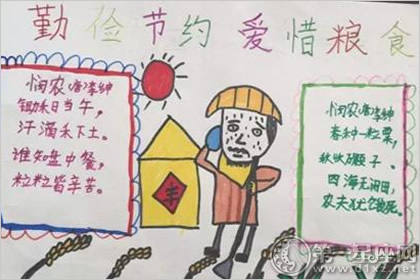 勤俭节约 爱惜粮食
悯农 唐 李绅
锄禾日当午，
汗滴禾下土。
谁知盘中餐，
粒粒皆辛苦。
丰
悯农 唐 李绅
春种一粒粟，
秋收万颗子。
四海无闲田，
农夫犹饿死。
第一星座网
www.d1xz.net